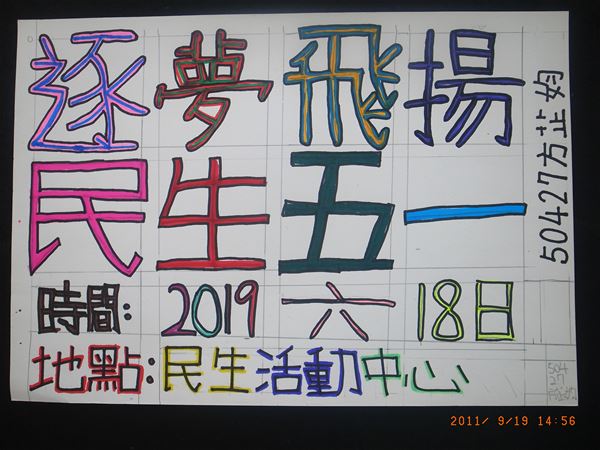 逐夢飛揚
民生五一
時間:2019六18日
地點:民生活動中心
50427方芷妁
504
27
2011/ 9/19 14:56